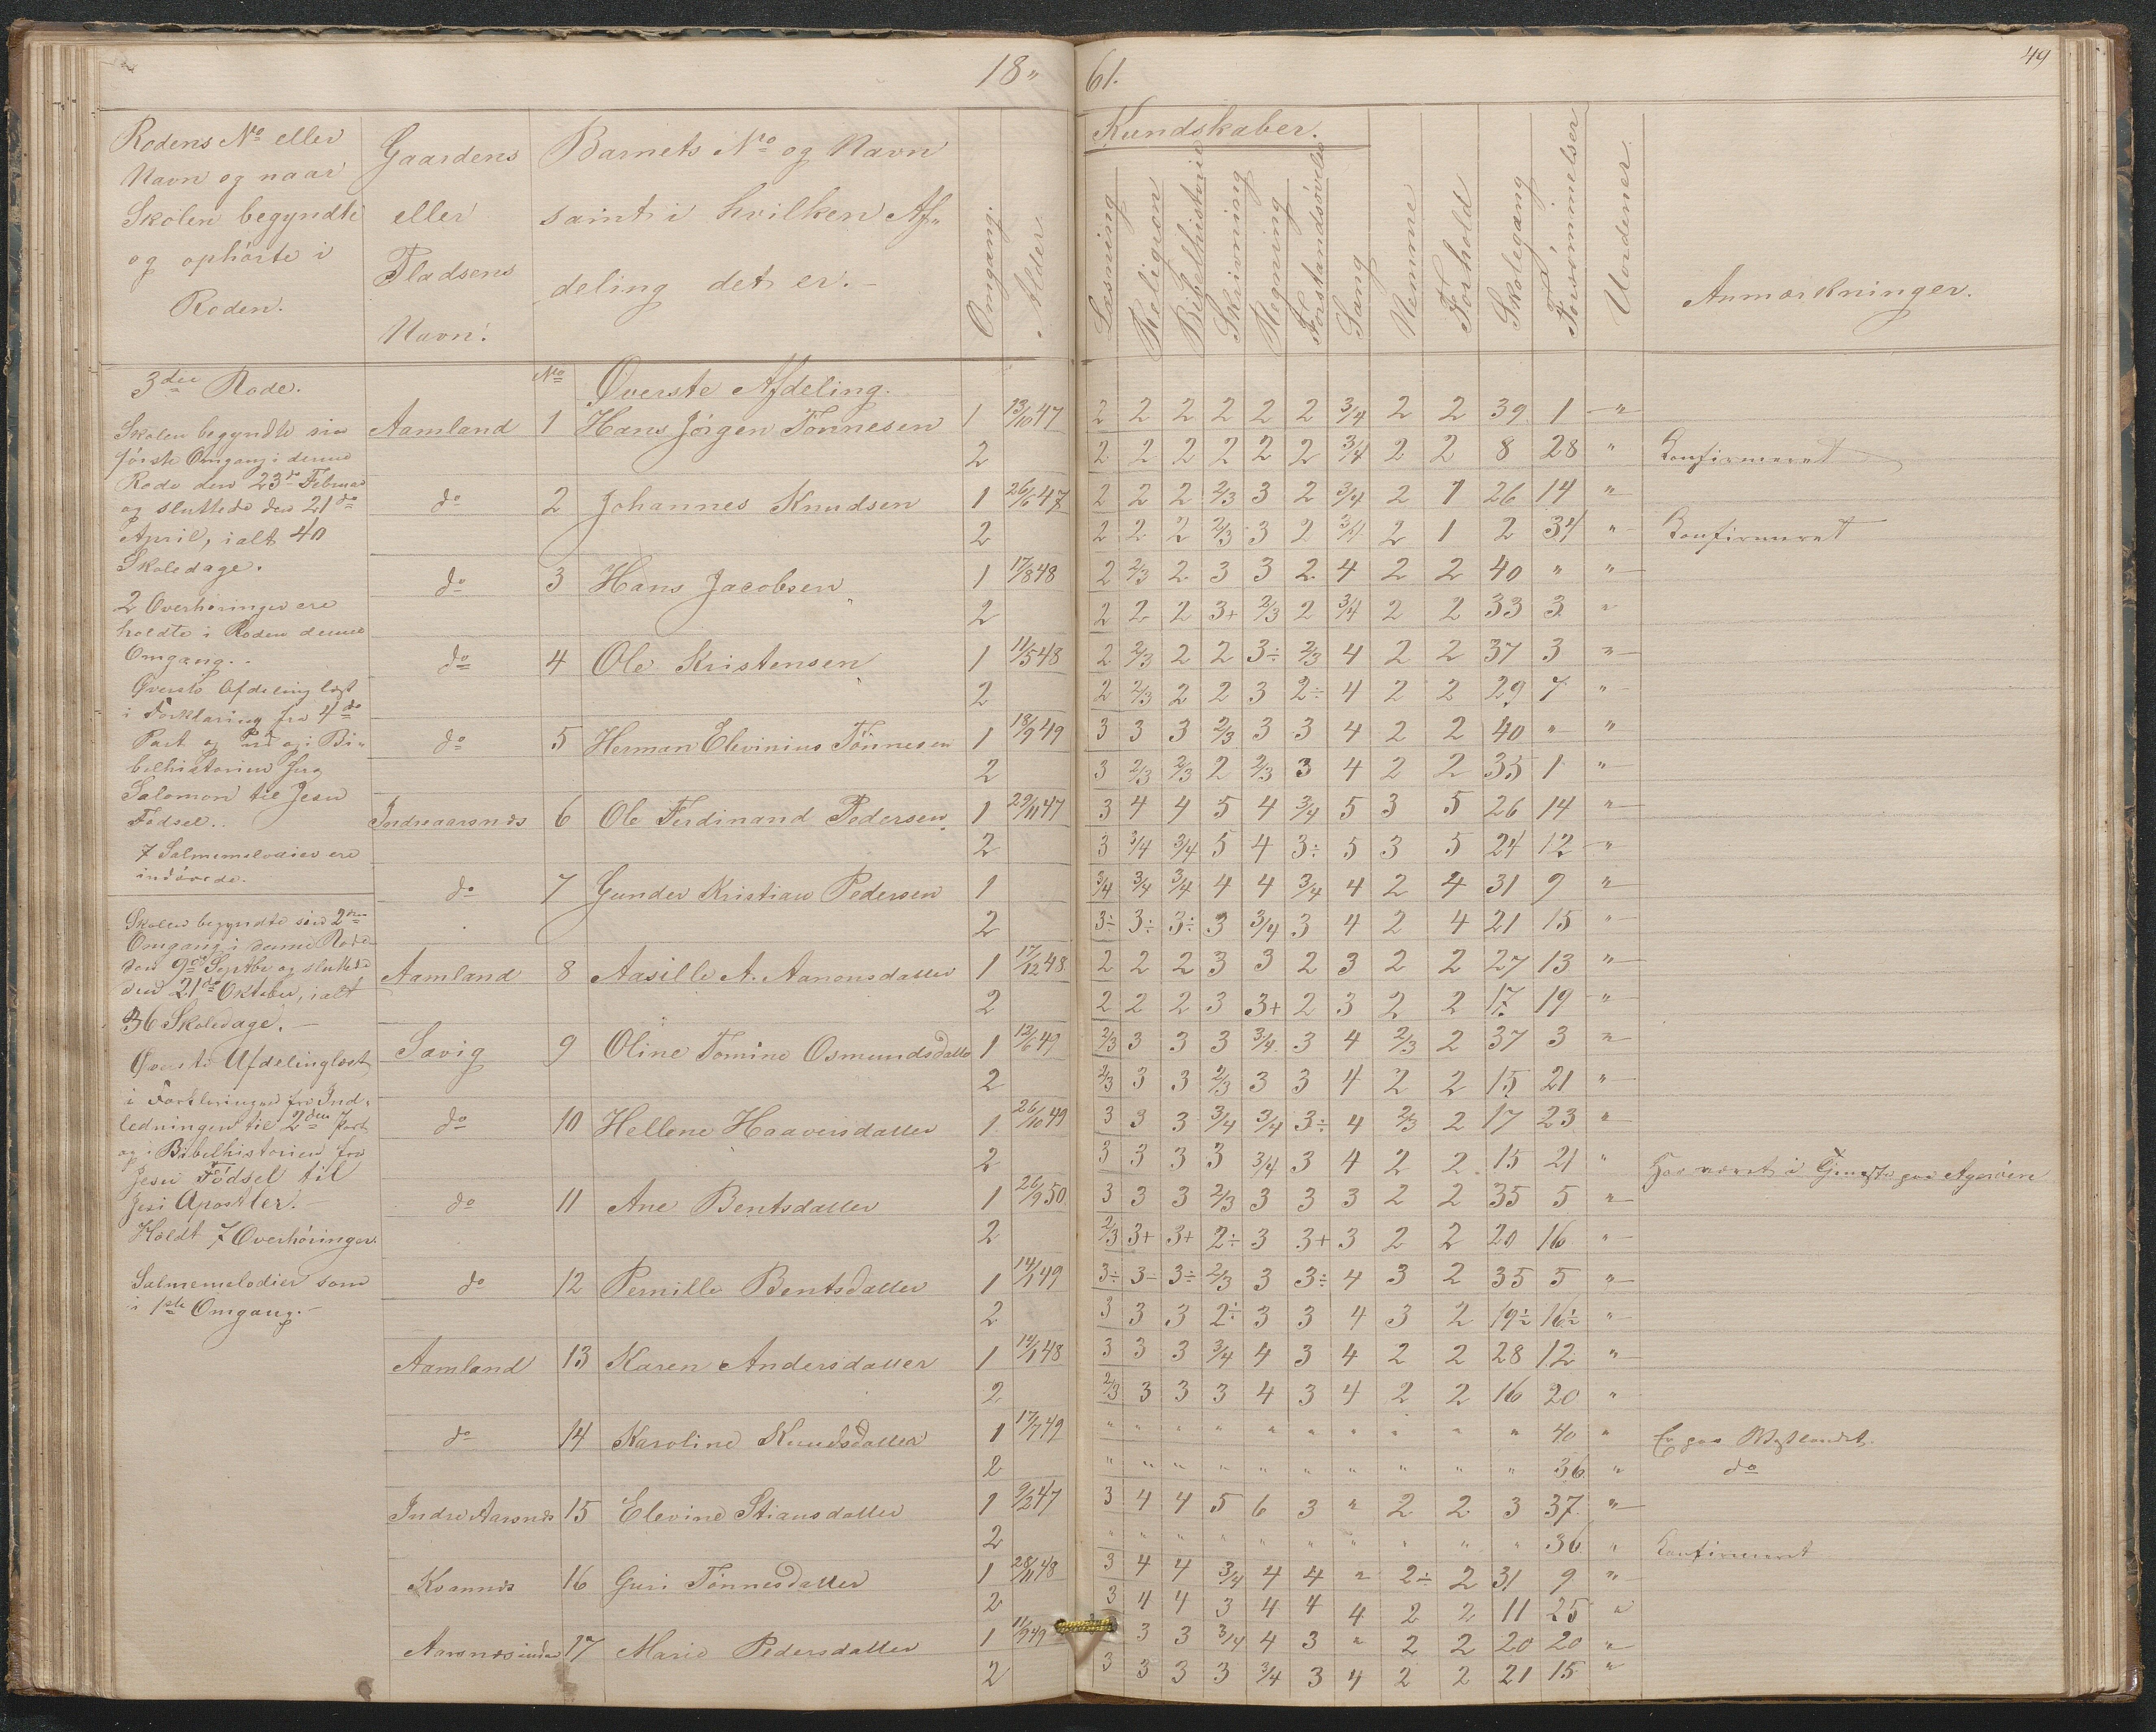 18" 61.
49
Rodens No eller
Navn og naar
Skolen begyndte
og ophörte i
Roden.
Gaardens
eller
Pladsens
Navn.
Barnets No og Navn
samt i hvilken Af„
deling det er.
Omgang.
Alder
Kundskaber.
Læsning
Religion
Bibelhistorie
Skrivning
Regning
Forstandsövelse
Sang
Nemme
Forhold
Skolegang
Forsömmelser
Uordener.
Anmærkninger.
3die Rode.
Skolen begyndte sin
förste Omgang i denne
Rode den 23de Februar
og sluttede den 21de
April, ialt 40
Skoledage.
2 Overhöringer ere
holdte i Roden denne
Omgang.
Överste Afdeling læst
i Forklaring fra 4de
Part og ud og i Bi„
belhistorien fra
Salomon til Jesu
Födsel.
7 Salmemelodier ere
indövede.
Skolen begyndte sin 2den
Omgang i denne Rode
den 9de Septbr og sluttede
den 21de Oktober, ialt
36 Skoledage.
Överste Afdeling læst
i Forklaringen fra Ind„
ledningen til 2den Part
og i Bibelhistorien fra
Jesu Födsel til
Jesu Apostler.
Holdt 7 Overhöringer.
Salmemelodier som
i 1ste Omgang.
No Överste Afdeling.
Aamland 1 Hans Jörgen Tönnesen 1 13/10 47 2 2 2 2 2 2 3/4 2 2 39 1 "
2 2 2 2 2 2 2 3/4 2 2 8 28 " Konfirmeret
do 2 Johannes Knudsen 1 26/6 47 2 2 2 2/3 3 2 3/4 2 1 26 14 "
2 2 2 2 2/3 3 2 3/4 2 1 2 34 " Konfirmeret
do 3 Hans Jacobsen 1 17/8 48 2 2/3 2 3 3 2 4 2 2 40 " "
2 2 2 2 3+ 2/3 2 3/4 2 2 33 3 "
do 4 Ole Kristensen 1 11/5 48 2 2/3 2 2 3÷ 2/3 4 2 2 37 3 "
2 2 2/3 2 2 3 2÷ 4 2 2 29 7 "
do 5 Herman Elevinius Tönnesen 1 18/9 49 3 3 3 2/3 3 3 4 2 2 40 " "
2 3 2/3 2/3 2 2/3 3 4 2 2 35 1 "
Indreaarsnæs 6 Ole Ferdinand Pedersen 1 29/11 47 3 4 4 5 4 3/4 5 3 5 26 14 "
2 3 3/4 3/4 5 4 3÷ 5 3 5 24 12 "
do 7 Gunder Kristian Pedersen 1 3/4 3/4 3/4 4 4 3/4 4 2 4 31 9 "
2 3÷ 3÷ 3÷ 3 3/4 3 4 2 4 21 15 "
Aamland 8 Aasille A. Aanonsdatter 1 17/12 48 2 2 2 3 3 2 3 2 2 27 13 "
2 2 2 2 3 3+ 2 3 2 2 17 19 "
Sævig 9 Oline Tomine Osmundsdatter 1 12/6 49 2/3 3 3 3 3/4 3 4 2/3 2 37 3 "
2 2/3 3 3 2/3 3 3 4 2 2 15 21 "
do 10 Hellene Haaversdatter 1 26/10 49 3 3 3 3/4 3/4 3÷ 4 2/3 2 17 23 "
2 3 3 3 3 3/4 3 4 2 2 15 21 " Har været i Tjeneste paa Ageröen
do 11 Ane Bentsdatter 1 26/9 50 3 3 3 2/3 3 3 3 2 2 35 5 "
2 2/3 3+ 3+ 2÷ 3 3+ 3 2 2 20 16 "
do 12 Pernille Bentsdatter 1 14/1 49 3÷ 3÷ 3÷ 2/3 3 3÷ 4 3 2 35 5 "
2 3 3 3 2÷ 3 3 4 3 2 19½ 16½ "
Aamland 13 Karen Andersdatter 1 14/1 48 3 3 3 3/4 4 3 4 2 2 28 12 "
2 2/3 3 3 3 4 3 4 2 2 16 20 "
do 14 Karoline Knudsdatter 1 17/7 49 " " " " " " " " " " 40 " Er paa Vestlandet.
2 " " " " " " " " " " 36 " do
Indre Aarsnæs 15 Elevine Stiansdatter 1 9/2 47 3 4 4 5 6 3 " 2 2 3 37 "
2 " " " " " " " " " " 36 " Konfirmeret
Kvannæs 16 Guri Tönnesdatter 1 28/11 48 3 4 4 3/4 4 4 " 2÷ 2 31 9 "
2 3 4 4 3 4 4 4 2 2 11 25 "
Aarsnæs indre 17 Marie Pedersdatter 1 11/9 49 3 3 3/4 4 3 " 2 2 20 20 "
2 3 3 3 3 3/4 3 4 2 2 21 15 "